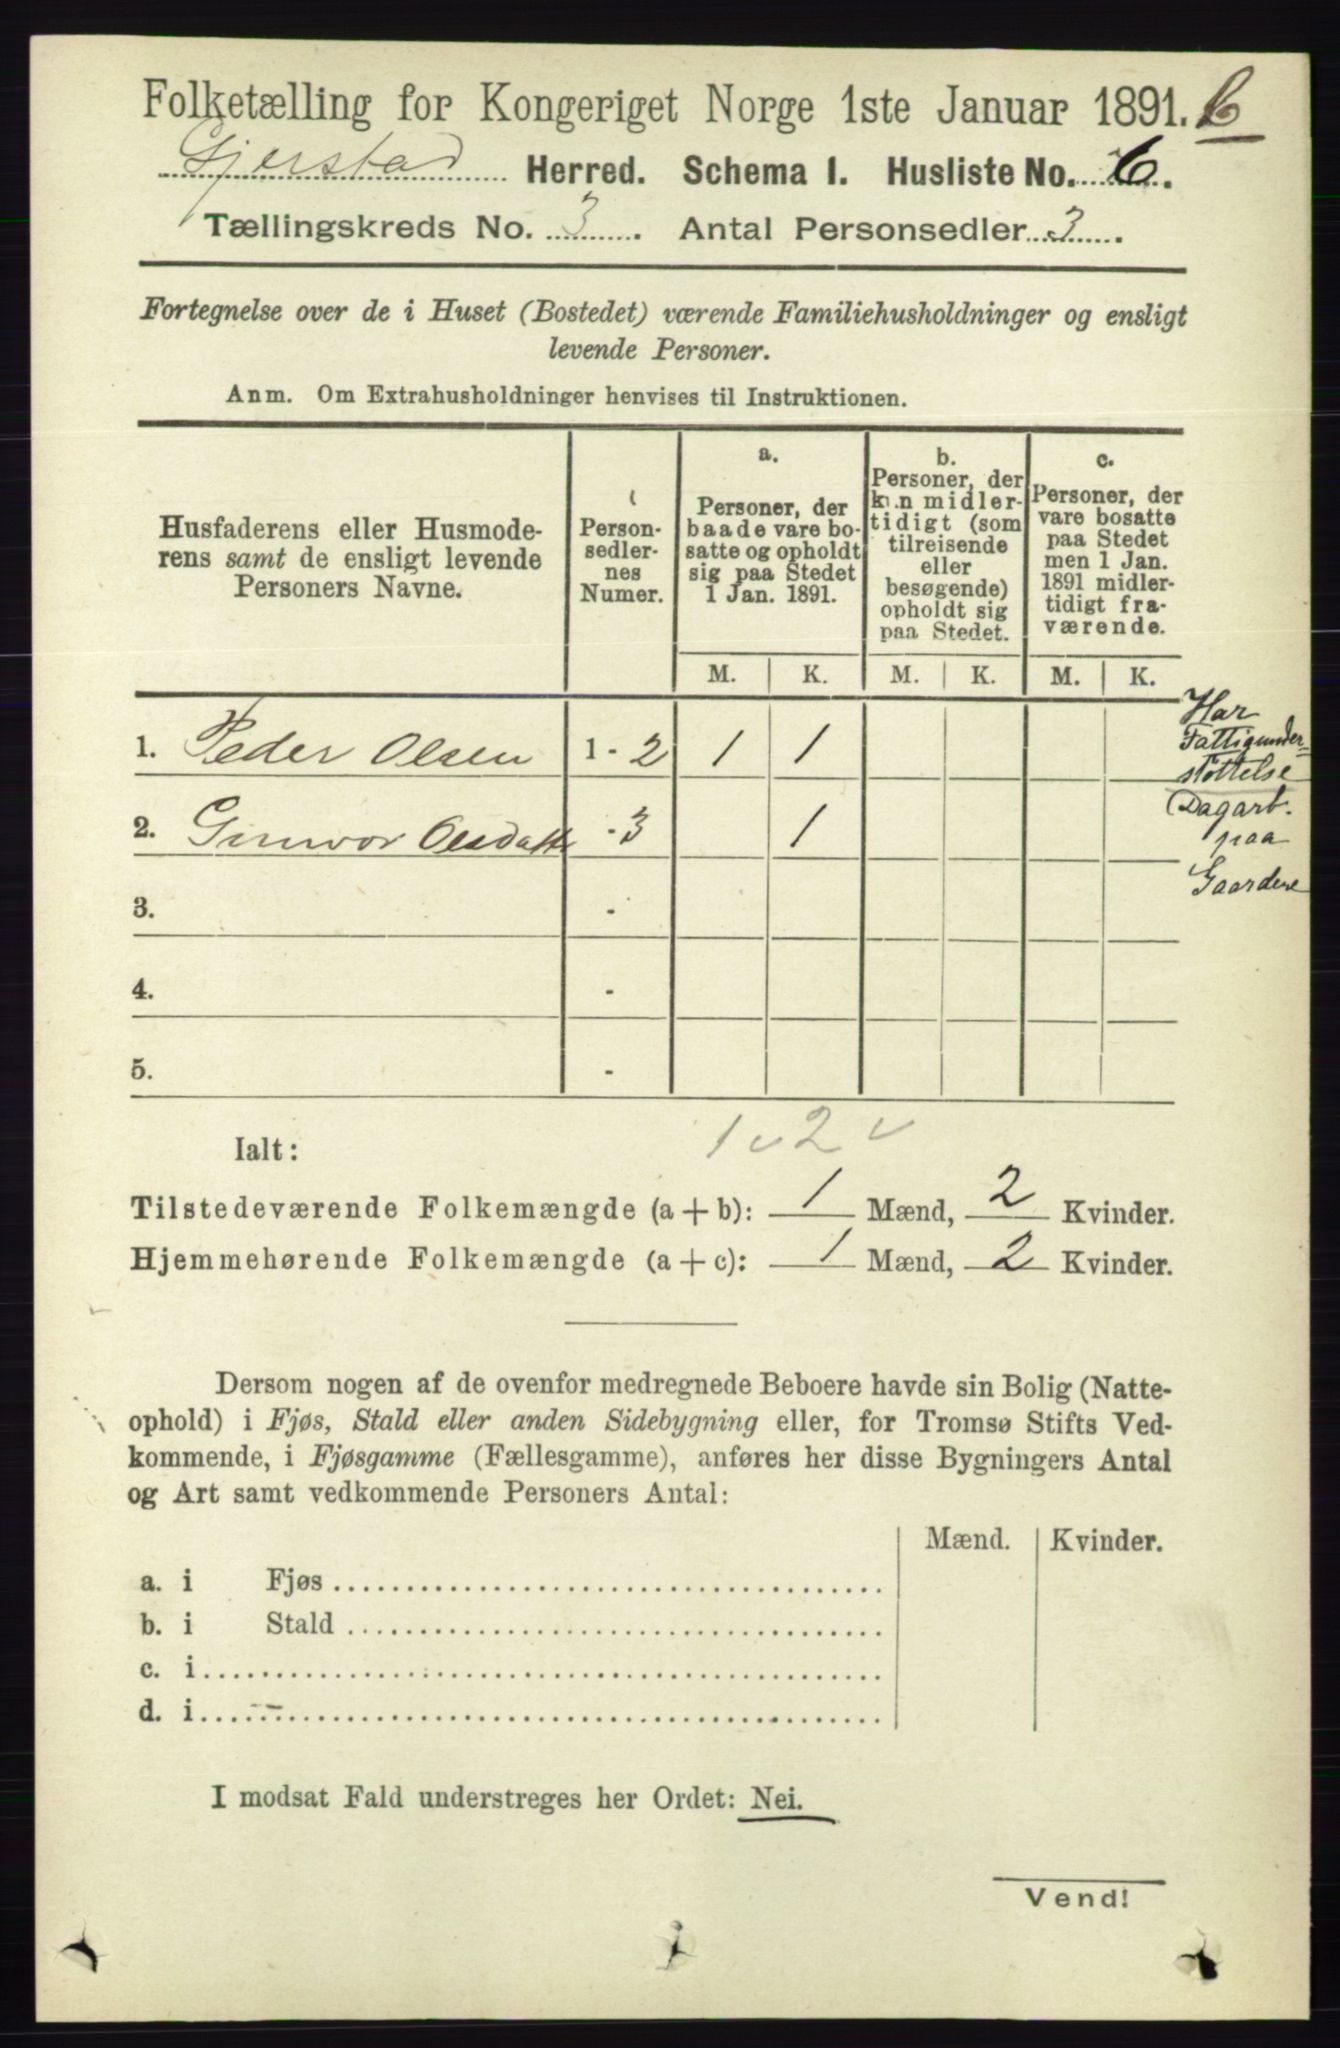 Folketælling for Kongeriget Norge 1ste Januar 1891.
Gjerstad Herred. Schema I. Husliste No. 6.
Tællingskreds No. 3. Antal Personsedler 3.
Fortegnelse over de i Huset (Bostedet) værende Familiehusholdninger og ensligt
levende Personer.
Anm. Om Extrahusholdninger henvises til Instruktionen.
Husfaderens eller Husmode-
rens samt de ensligt levende
Personers Navne.
Person-
sedler-
nes
Numer.
a.
Personer, der
baade vare bo-
satte og opholdt
sig paa Stedet
1 Jan. 1891.
b.
Personer, der
kun midler-
tidigt (som
tilreisende
eller
besøgende)
opholdt sig
paa Stedet.
c.
Personer, der
vare bosatte
paa Stedet
men 1 Jan.
1891 midler-
tidigt fra-
værende.
M. K. M. K. M. K.
1. Peder Olsen 1 - 2 1 1
2. Gunvor Olsdatter - 3 1
3. -
4. -
5. -
Har
Fattigunder-
støttelse
(Dagarb.
paa
Gaardene
1 2
Ialt:
Tilstedeværende Folkemængde (a + b): 1 Mænd, 2 Kvinder.
Hjemmehørende Folkemængde (a + c): 1 Mænd, 2 Kvinder.
Dersom nogen af de ovenfor medregnede Beboere havde sin Bolig (Natte-
ophold) i Fjøs, Stald eller anden Sidebygning eller, for Tromsø Stifts Ved-
kommende, i Fjøsgamme (Fællesgamme), anføres her disse Bygningers Antal
og Art samt vedkommende Personers Antal:
Mænd. Kvinder.
a. i Fjøs
b. i Stald
c. i
d. i
I modsat Fald understreges her Ordet: Nei.
Vend!